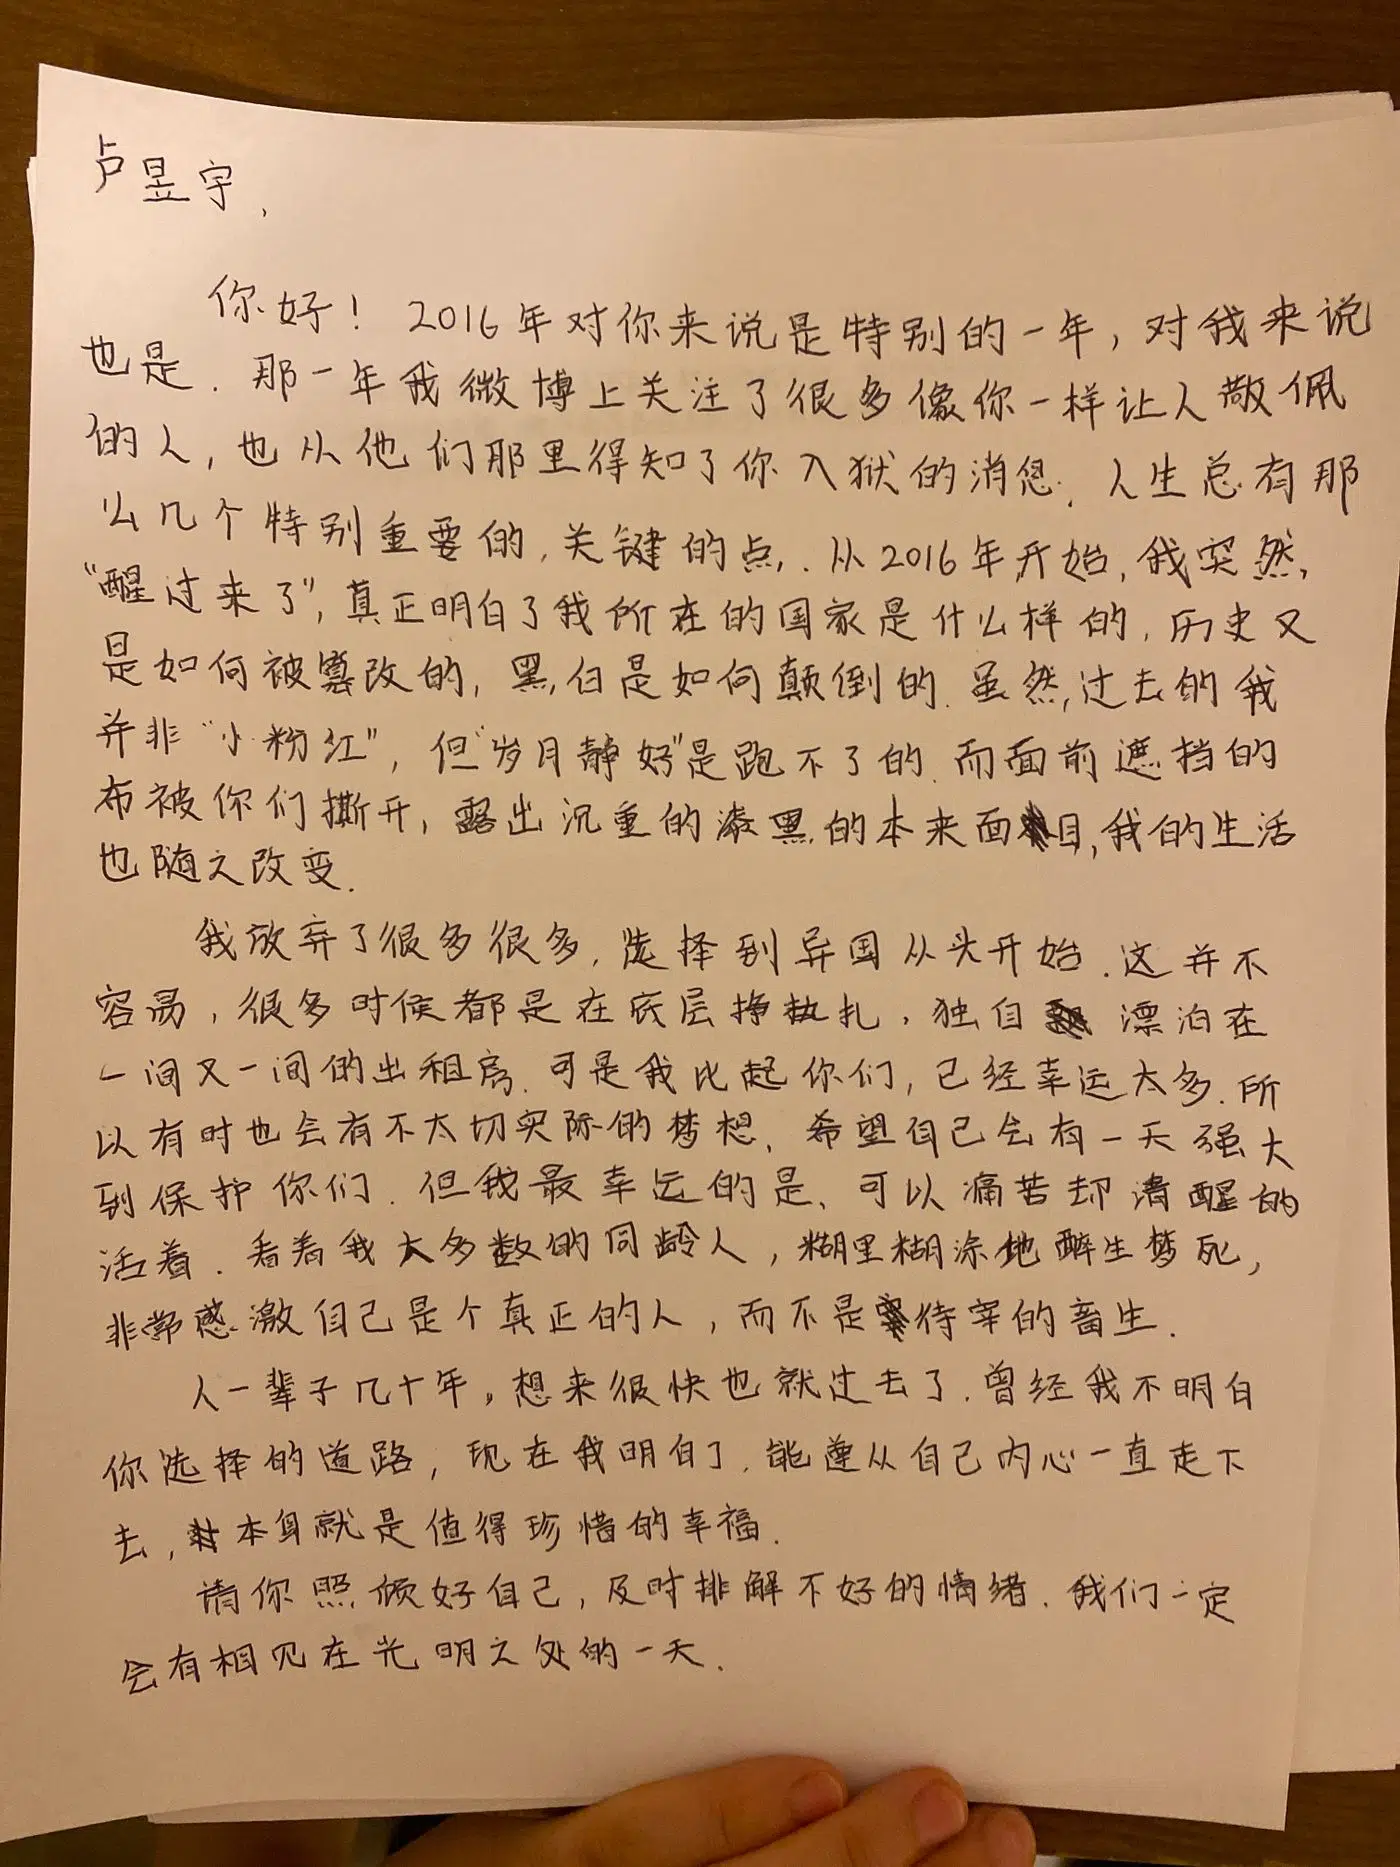 卢昱宇，
你好！2016年对你来说是特别的一年，对我来说
也是．那一年我微博上关注了很多像你一样让人敬佩
的人，也从他们那里得知了你入狱的消息．人生总有那
么几个特别重要的，关键的点，．从2016年开始，我突然，
“醒过来了”，真正明白了我所在的国家是什么样的，历史又
是如何被篡改的，黑白是如何颠倒的．虽然，过去的我
并非“小粉红”，但“岁月静好”是跑不了的．而面前遮挡的
布被你们撕开，露出沉重的漆黑的本来面目，我的生活
也随之改变．
我放弃了很多很多，选择到异国从头开始．这并不
容易，很多时候都是在底层挣扎，独自漂泊在
一间又一间的出租房．可是我比起你们，已经幸运太多．所
以有时也会有不太切实际的梦想，希望自己会有一天强大
到保护你们．但我最幸运的是，可以痛苦却清醒的
活着．看着我大多数的同龄人，糊里糊涂地醉生梦死，
非常感激自己是个真正的人，而不是待宰的畜生．
人一辈子几十年，想来很快也就过去了．曾经我不明白
你选择的道路，现在我明白了．能遵从自己内心一直走下
去，本身就是值得珍惜的幸福．
请你照顾好自己，及时排解不好的情绪．我们一定
会有相见在光明之处的一天．